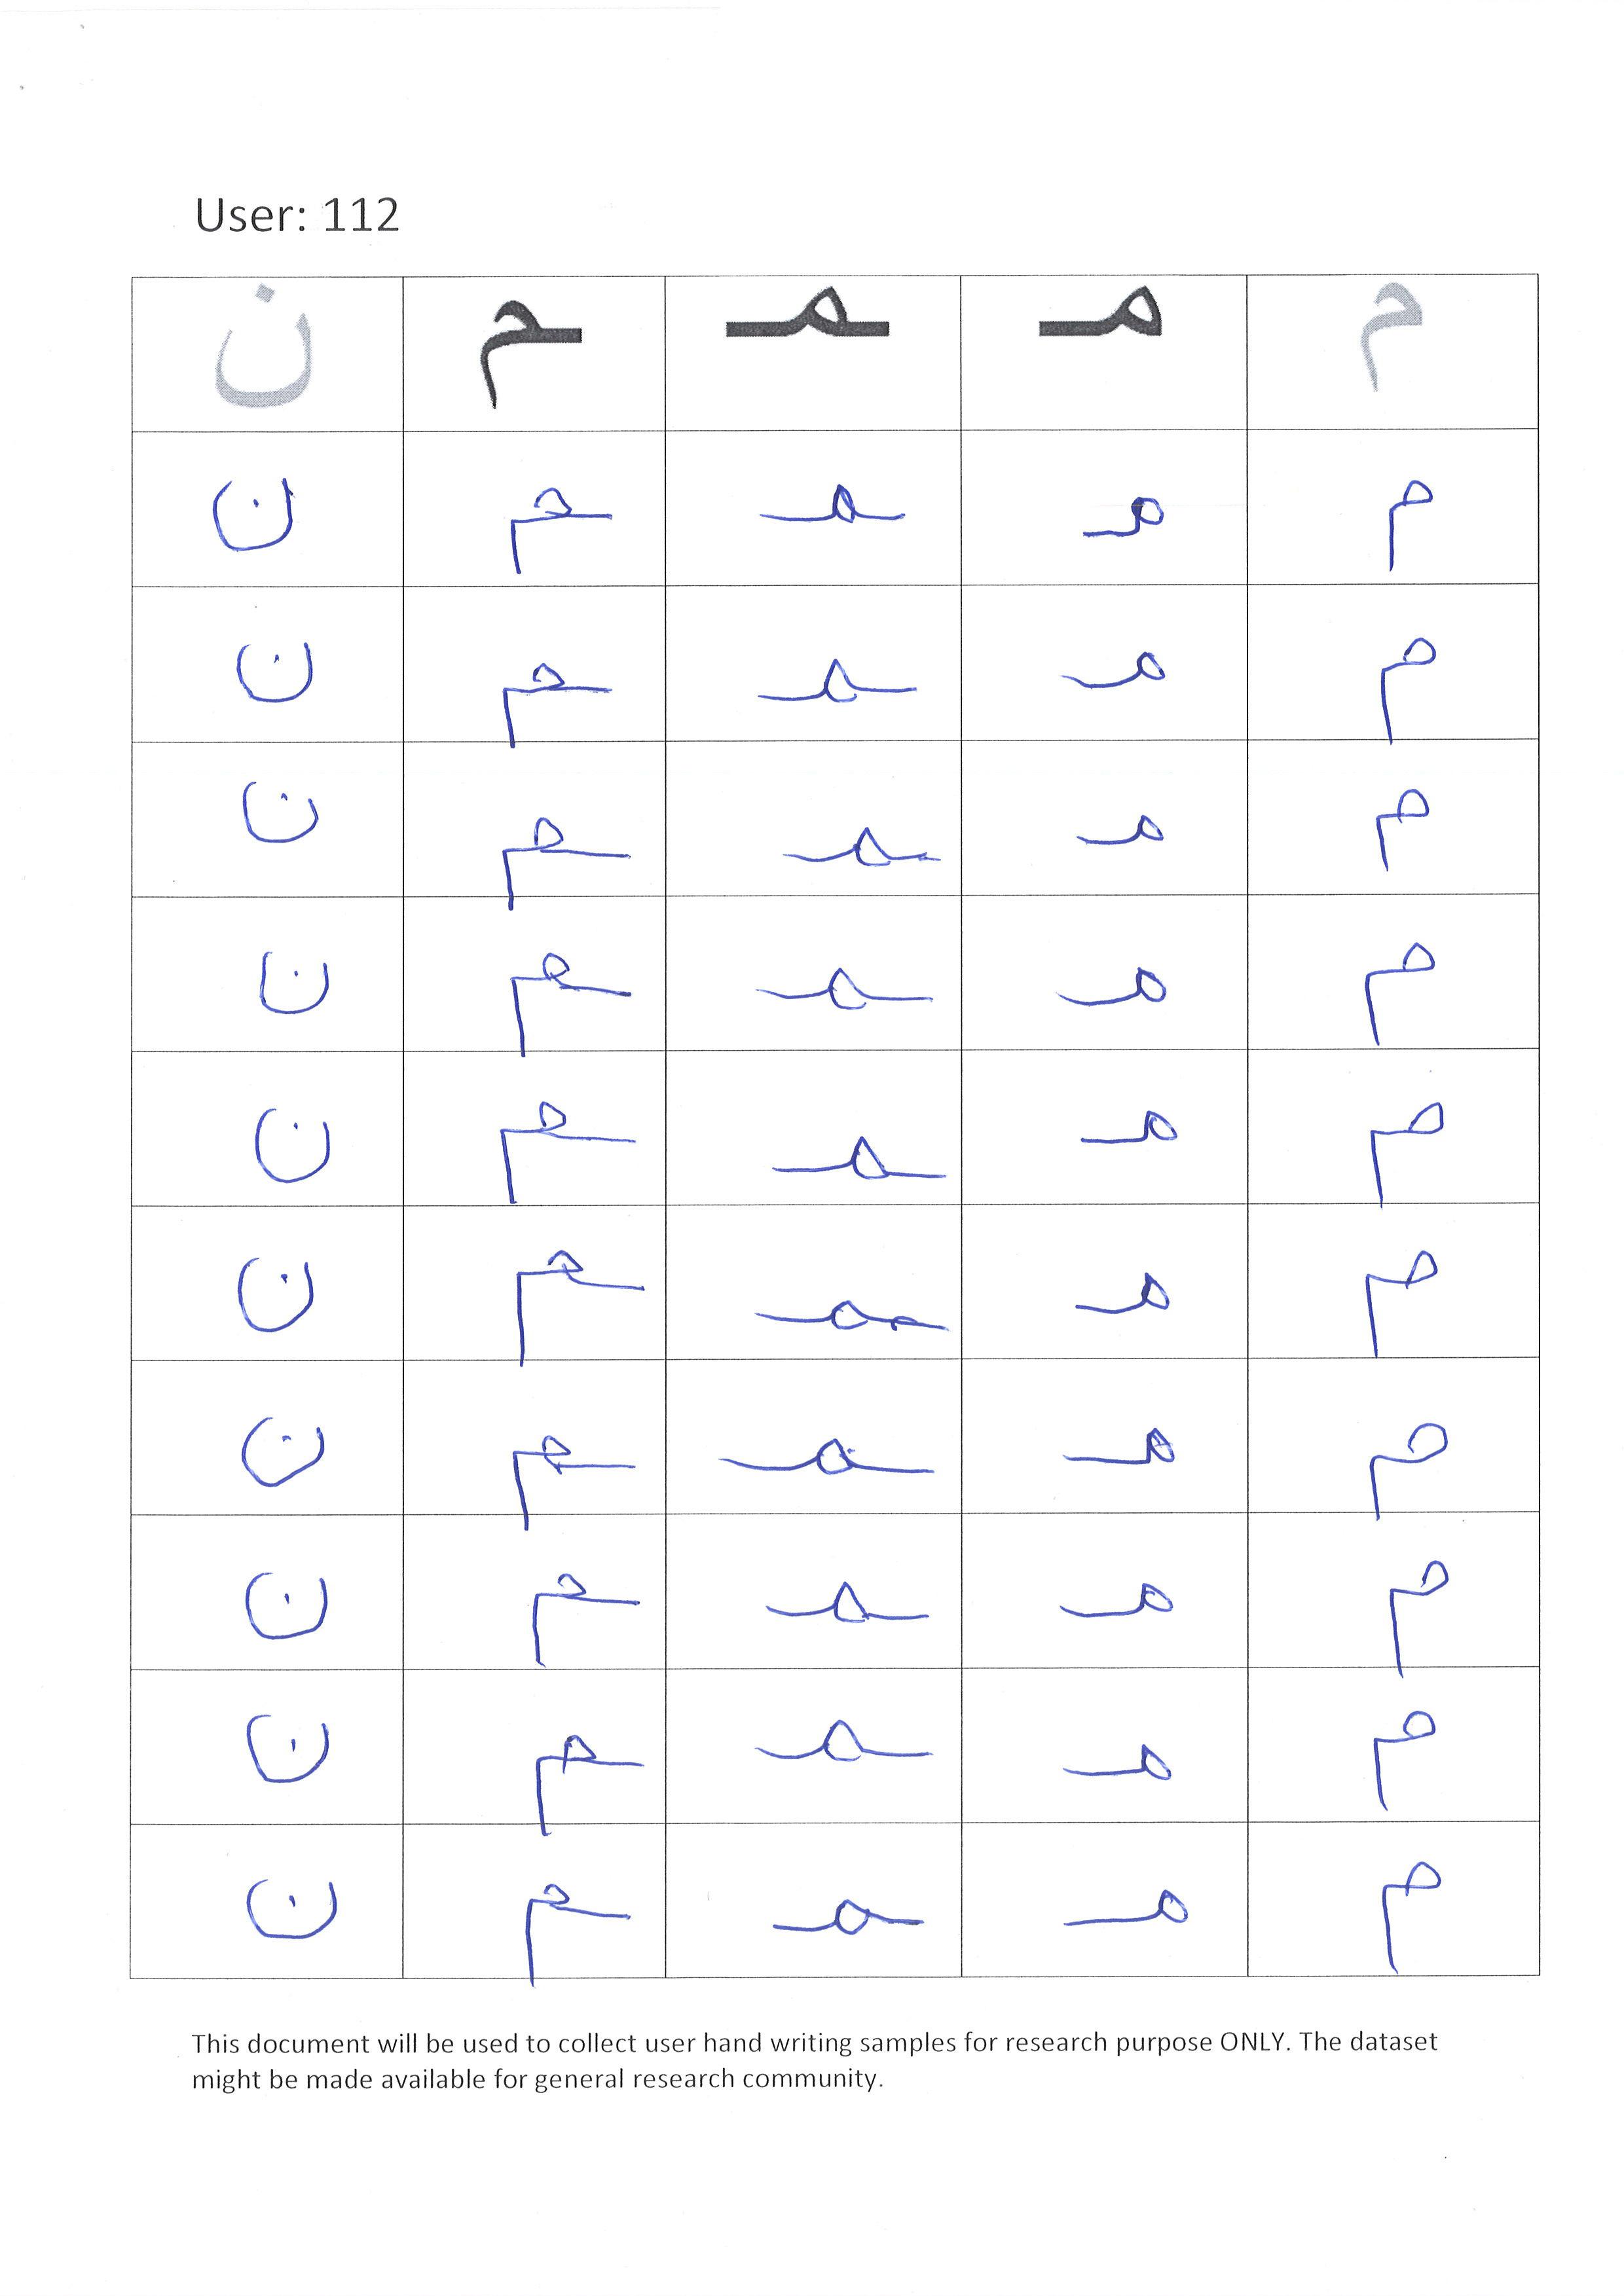 User: 112
م مـ ـمـ ـم ن
م مـ ـمـ ـم ن
م مـ ـمـ ـم ن
م مـ ـمـ ـم ن
م مـ ـمـ ـم ن
م مـ ـمـ ـم ن
م مـ ـمـ ـم ن
م مـ ـمـ ـم ن
م مـ ـمـ ـم ن
م مـ ـمـ ـم ن
م مـ ـمـ ـم ن
This document will be used to collect user hand writing samples for research purpose ONLY. The dataset
might be made available for general research community.